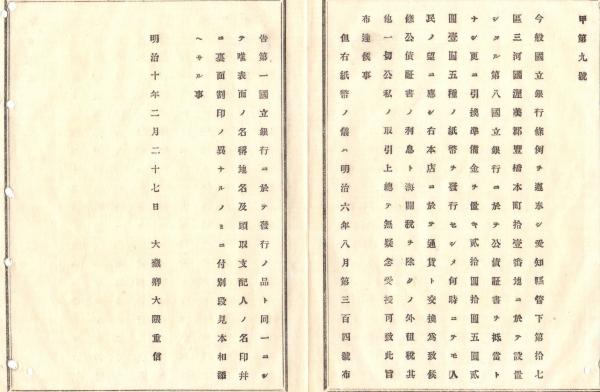 甲第九號
今般國立銀行條例ヲ遵奉シ愛知縣管下第拾七
區三河國渥美郡豐橋本町拾壹番地ニ於テ設置
シタル第八國立銀行ニ於テ公債証書ヲ抵當ト
ナシ更ニ引換準備金ヲ備ヘ貳拾圓拾圓五圓貳
圓壹圓五種ノ紙幣ヲ發行セシメ何時ニテモ人
民ノ望ニ應シ右本店ニ於テ通貨ト交換爲致候
條公債証書ノ利息ト海關税ヲ除クノ外租税其
他一切公私ノ取引上總テ無疑念受授可致此旨
布達候事
但右紙幣ノ儀ハ明治六年八月第三百四號布
告第一國立銀行ニ於テ發行ノ品ト同一ニシ
テ唯表面ノ名稱地名及頭取支配人ノ名印并
ニ裏面割印ノ異ナルノミニ付別段見本相添
ヘサル事
明治十年二月二十七日 大藏卿大隈重信